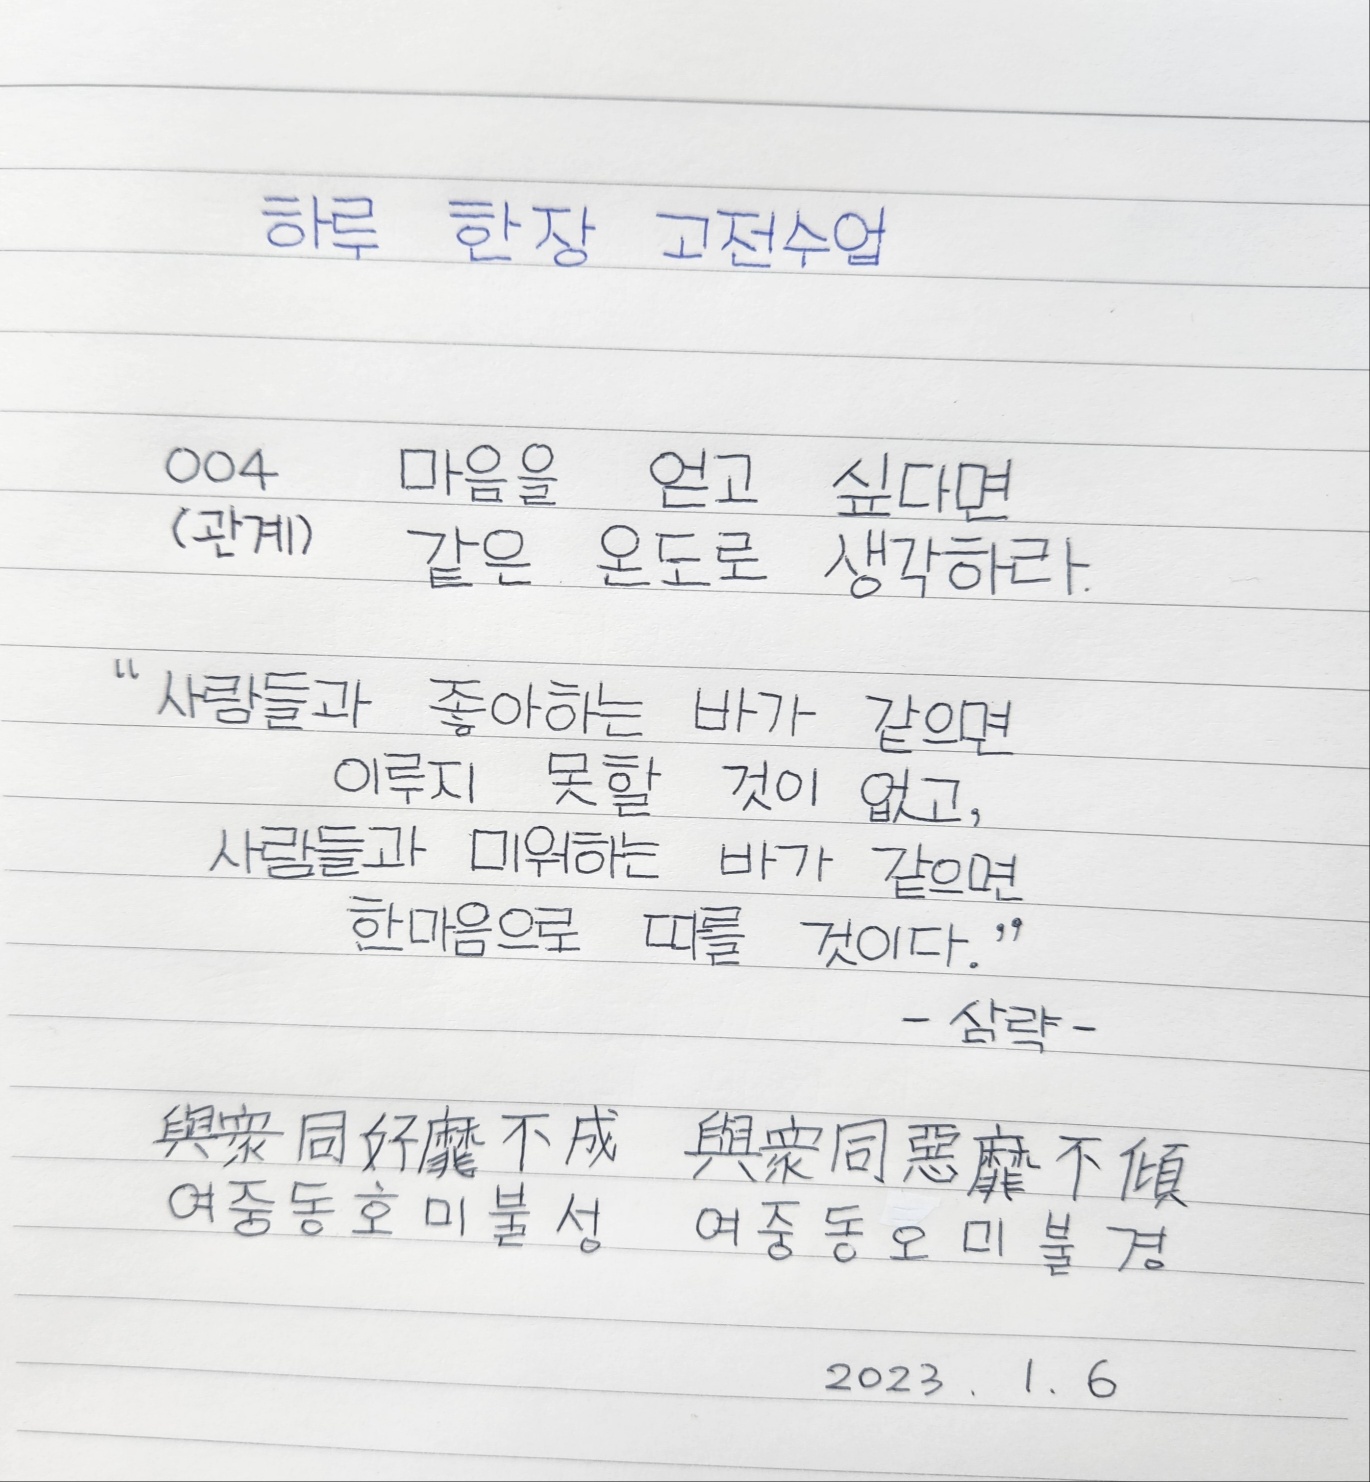 하루 한장 고전수업
004 마음을 얻고 싶다면
(관계) 같은 온도로 생각하라.
“사람들과 좋아하는 바가 같으면
이루지 못할 것이 없고,
사람들과 미워하는 바가 같으면
한마음으로 따를 것이다.”
- 삼략 -
與衆同好靡不成 與衆同惡靡不傾
여중동호미불성 여중동오미불경
2023. 1. 6